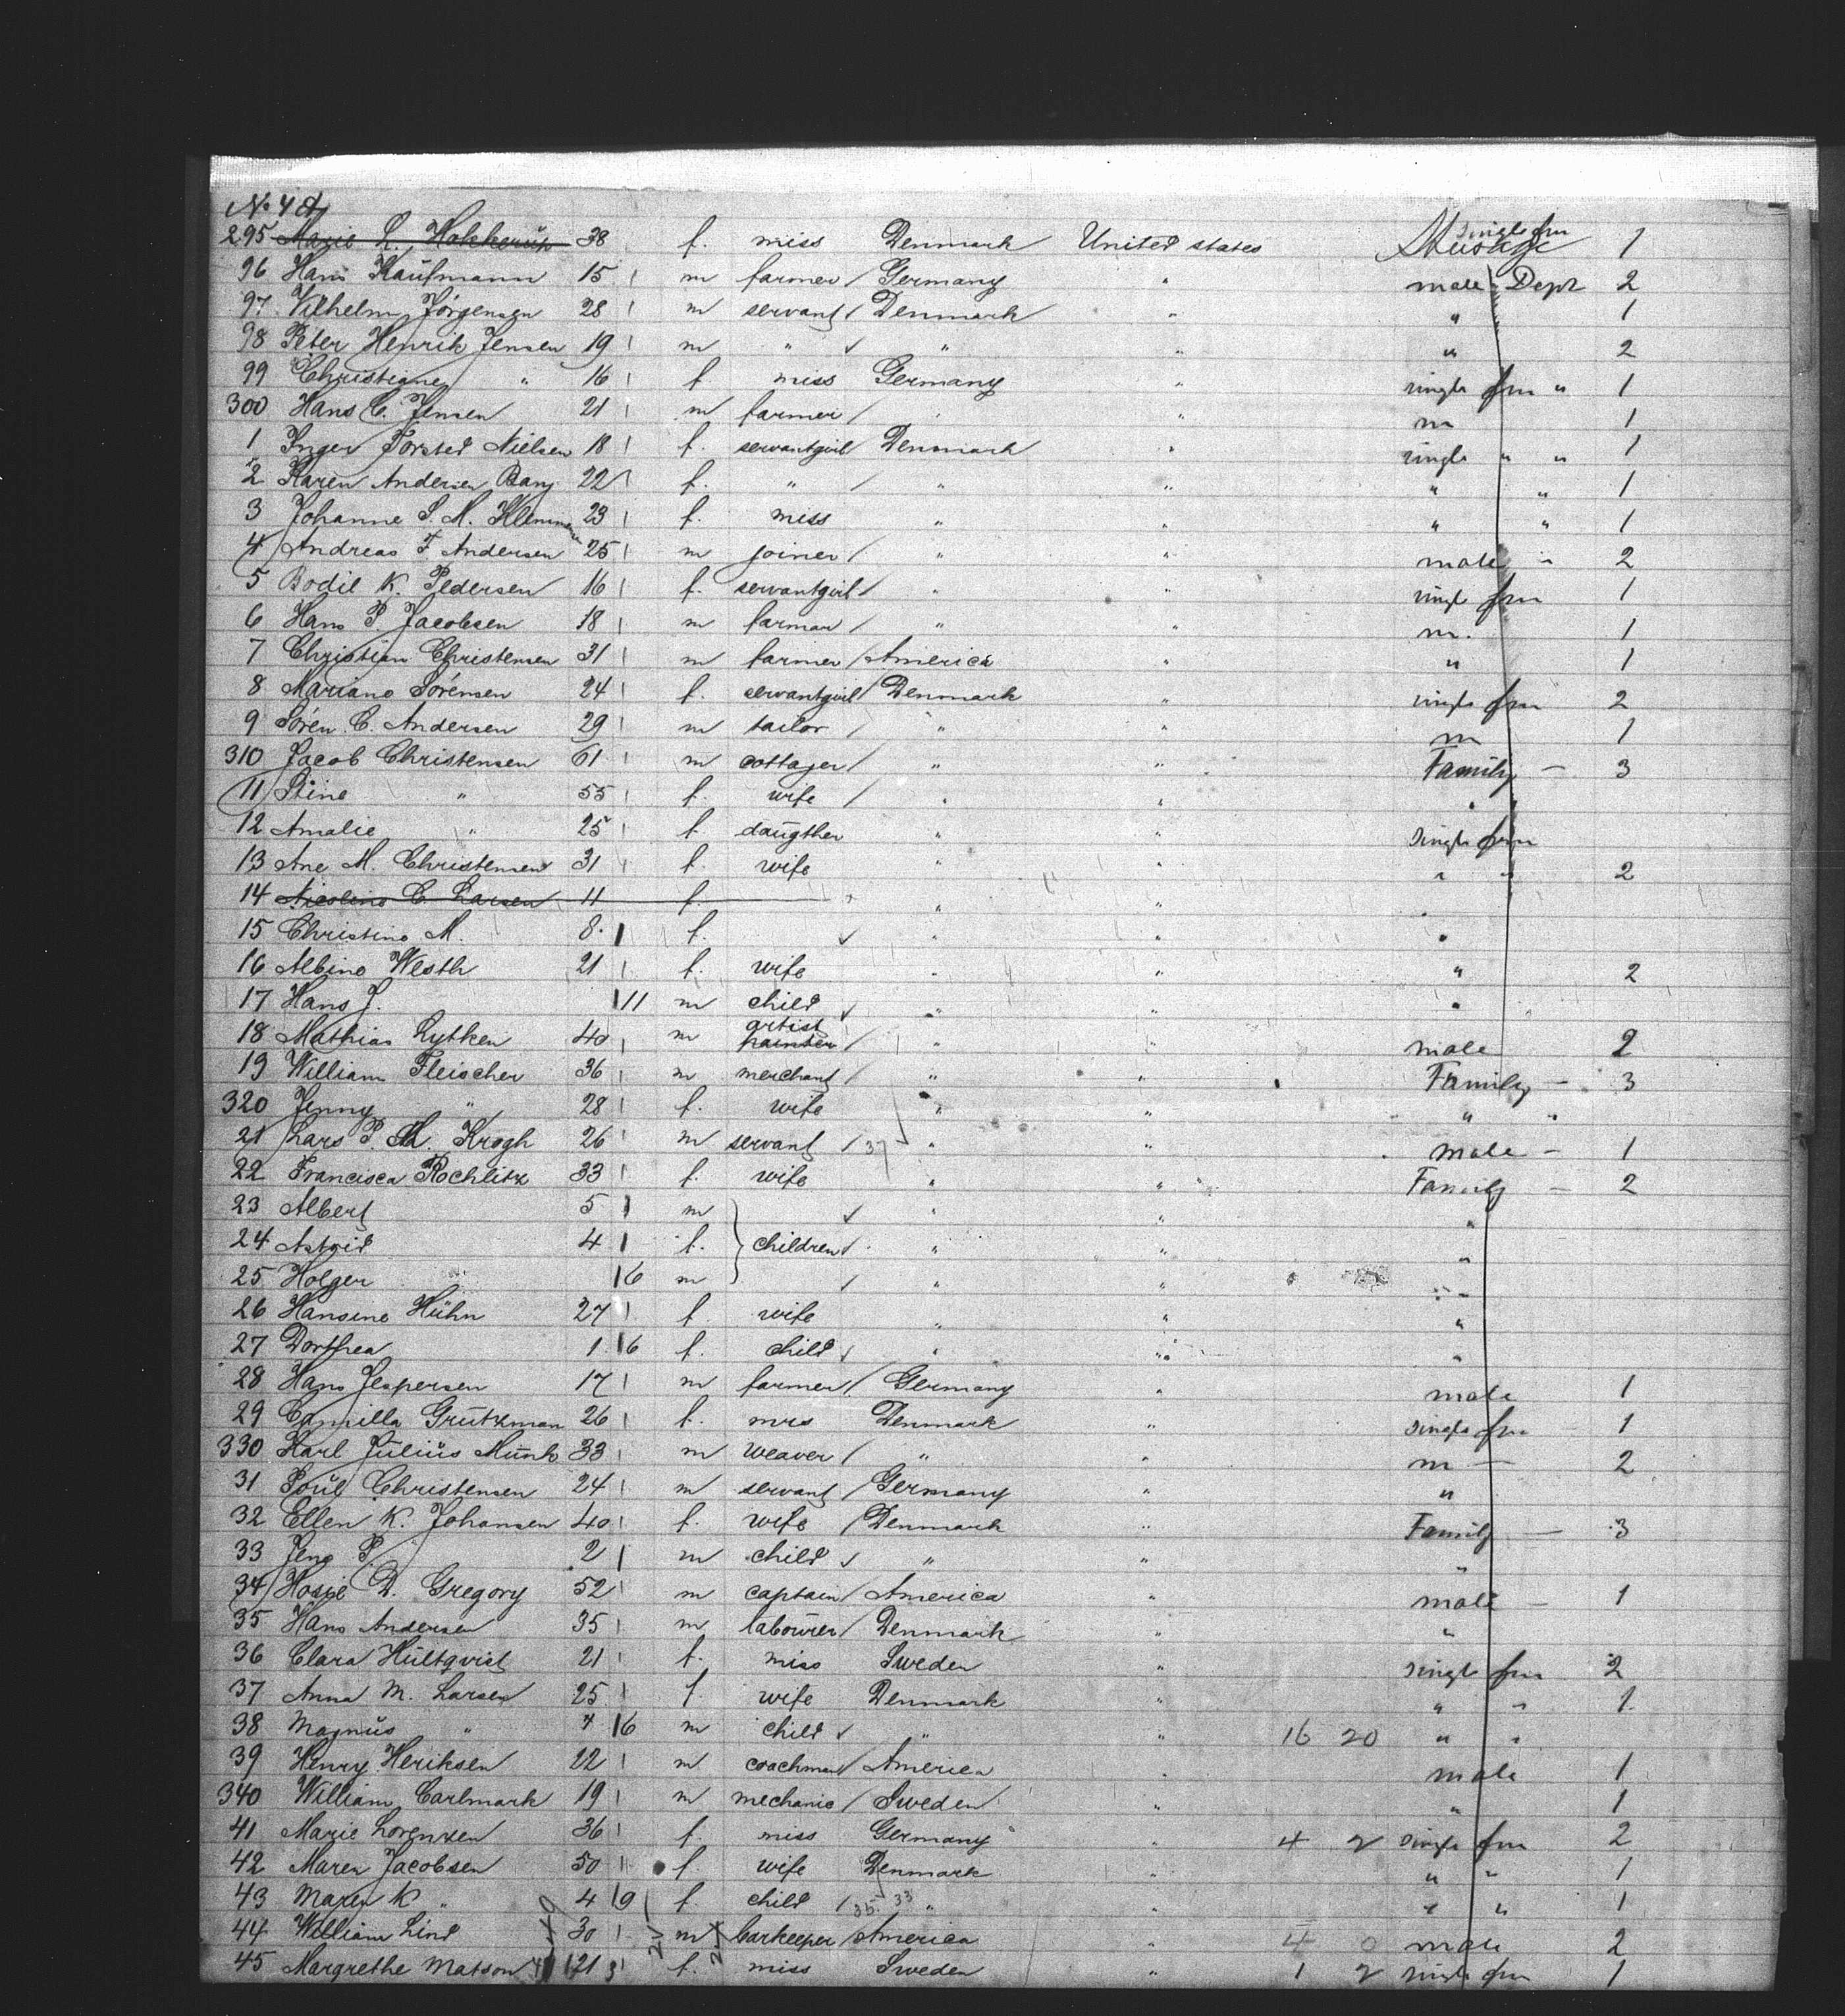 No 4 A
295 Marie L. Hokkerup 38 f. miss Denmark United states Steerage single fm 1
96 Hans Kaufmann 15 m farmer / Germany " male Dept 2
97 Vilhelm Jörgensen 28 m servant / Denmark " " 1
98 Peter Henrik Jensen 19 m " " " " 2
99 Christiane " 16 f miss Germany " single fm " 1
300 Hans C. Jensen 21 m farmer / " " m 1
1 Inger Torsted Nielsen 18 f. servantgirl Denmark " single " " 1
2 Karen Andersen Bang 22 f. " / " " " " 1
3 Johanne S. M. Klemmensen 23 f. miss " " " " 1
4 Andreas F Andersen 25 m joiner / " " male " 2
5 Bodil K. Pedersen 16 f. servantgirl / " " single fm 1
6 Hans P Jacobsen 18 m farmar / " " m. 1
7 Christian Christensen 31 m farmer / America " " 1
8 Mariane Sörensen 24 f. servantgirl / Denmark " single fm 2
9 Sören C. Andersen 29 m tailor / " " m 1
310 Jacob Christensen 61 m cottager / " " Family — 3
11 Stine " 55 f. wife / " " "
12 Amalie " 25 f. daugther " " single fm
13 Ane M. Christensen 31 f. wife " " " " 2
14 Nicoline C. Larsen 11 f. " " "
15 Christine M. 8 f. " " "
16 Albine Westh 21 f. wife " " " 2
17 Hans J. 11 m child " " "
18 Mathias Lytken 40 m artist painter / " " male 2
19 William Fleischer 36 m merchant / " " Family — 3
320 Jenny " 28 f. wife " " " "
21 Lars P. M. Krogh 26 m servant / 37 " " male — 1
22 Francisca Rochlitz 33 f. wife " " Family — 2
23 Albert 5 m " " "
24 Astrid 4 f. children / " " "
25 Holger 6 m / " " "
26 Hansine Hühn 27 f. wife " " "
27 Dorthea 1 6 f. child " " "
28 Hans Jespersen 17 m farmer / Germany " male 1
29 Camilla Grützman 26 f. mrs Denmark " single fm — 1
330 Karl Julius Munk 33 m weaver / " " m — 2
31 Poul Christensen 24 m servant / Germany " "
32 Ellen K. Johansen 40 f. wife / Denmark " Family — 3
33 Jens P. 2 m child " " "
34 D. Gregory 52 m captain / America " male — 1
35 Hans Andersen 35 m labourer / Denmark " "
36 Clara Hultqvist 21 f. miss Sweden " single fm 2
37 Anna M. Larsen 25 f. wife Denmark " " " 1
38 Magnus " 6 m child " " 16 20 " "
39 Henry Heriksen 22 m coachman / America " male 1
340 William Carlmark 19 m mechanic / Sweden " " 1
41 Marie Lorenzen 36 f. miss Germany " 4 2 single fm 2
42 Maren Jacobsen 50 f. wife Denmark " " " 1
43 Maren K " 4 9 f. child / 35 33 " " " " 1
44 William Lind 30 m barkeeper / America " 4 0 male 2
45 Margrethe Matson 21 f. miss Sweden " 1 2 single fm 1